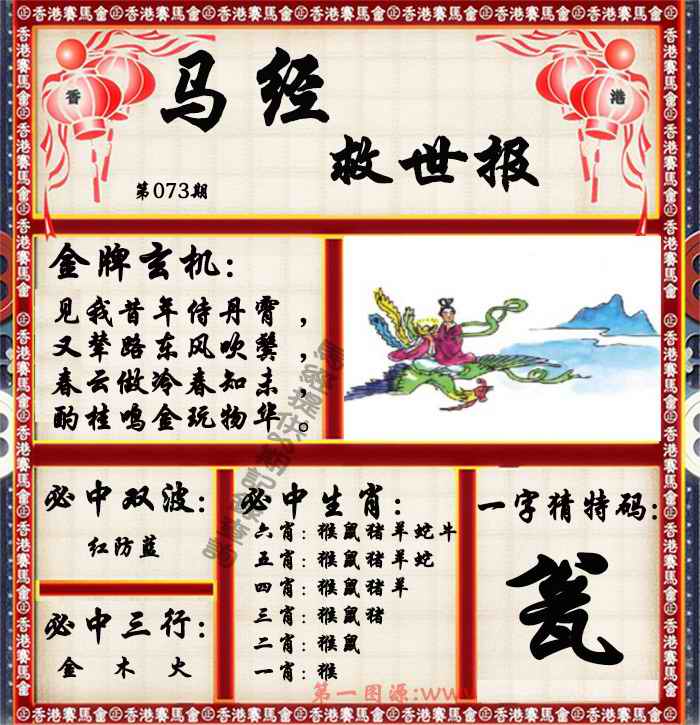 香港賽馬會
香 港
马经
救世报
第073期
金牌玄机：
见我昔年侍丹霄，
又辇路东风吹鬓，
春云做冷春知未，
酌桂鸣金玩物华。
必中双波：
红防蓝
必中三行：
金 木 火
必中生肖：
六肖：猴鼠猪羊蛇牛
五肖：猴鼠猪羊蛇
四肖：猴鼠猪羊
三肖：猴鼠猪
二肖：猴鼠
一肖：猴
一字猜特码：
瓮
第一图源:www